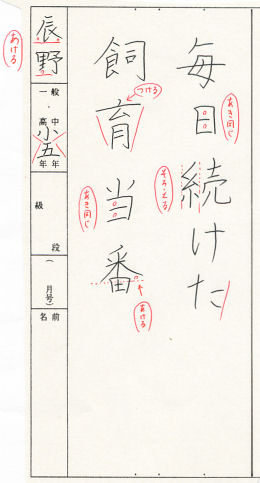 毎日続けた
あき同じ
そろえる
飼育当番
つける
あき同じ
あける
辰野
あける
一般
高中
小五
年年
級
段
(月号)
名前